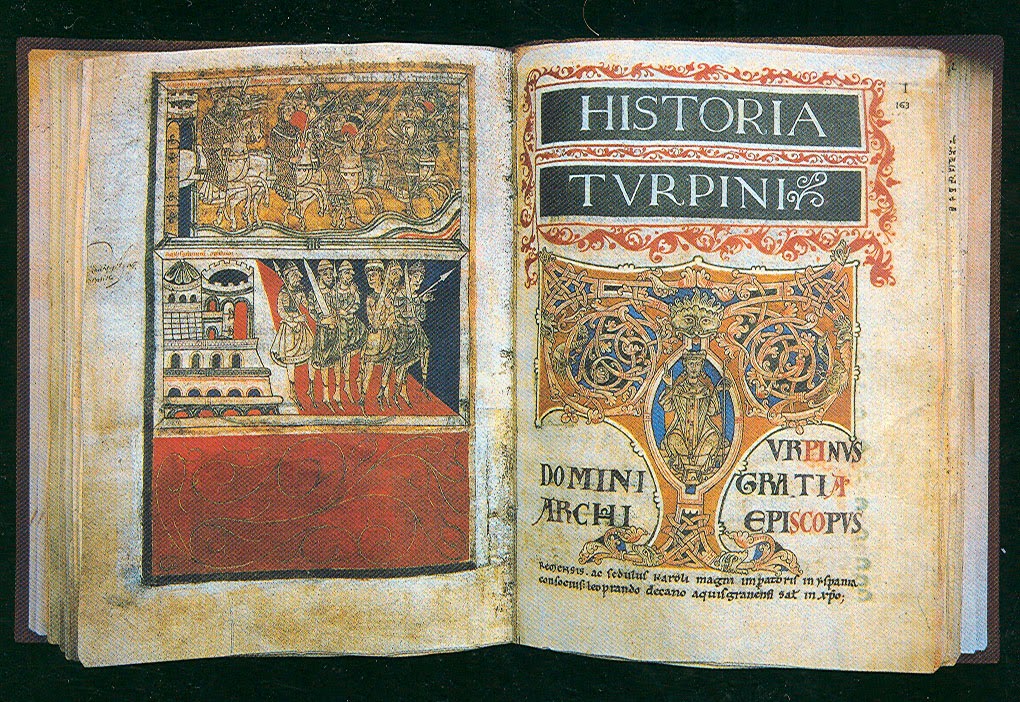 I
163
HISTORIA
TVRPINI
VRPINVS
DOMINI GRATIA
ARCHI EPISCOPVS
REMENSIS. ac sedulus karoli magni impatoris in yspania
consocius. leoprando decano aquisgranensi sat in xpo;